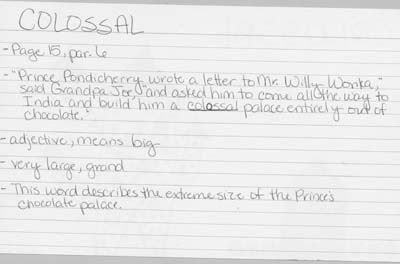 COLOSSAL
- Page 15, par. 6
- "Prince Pondicherry wrote a letter to Mr. Willy Wonka,"
said Grandpa Joe, "and asked him to come all the way to
India and build him a colossal palace entirely out of
chocolate."
- adjective, means big
- very large, grand
- This word describes the extreme size of the Prince's
chocolate palace.